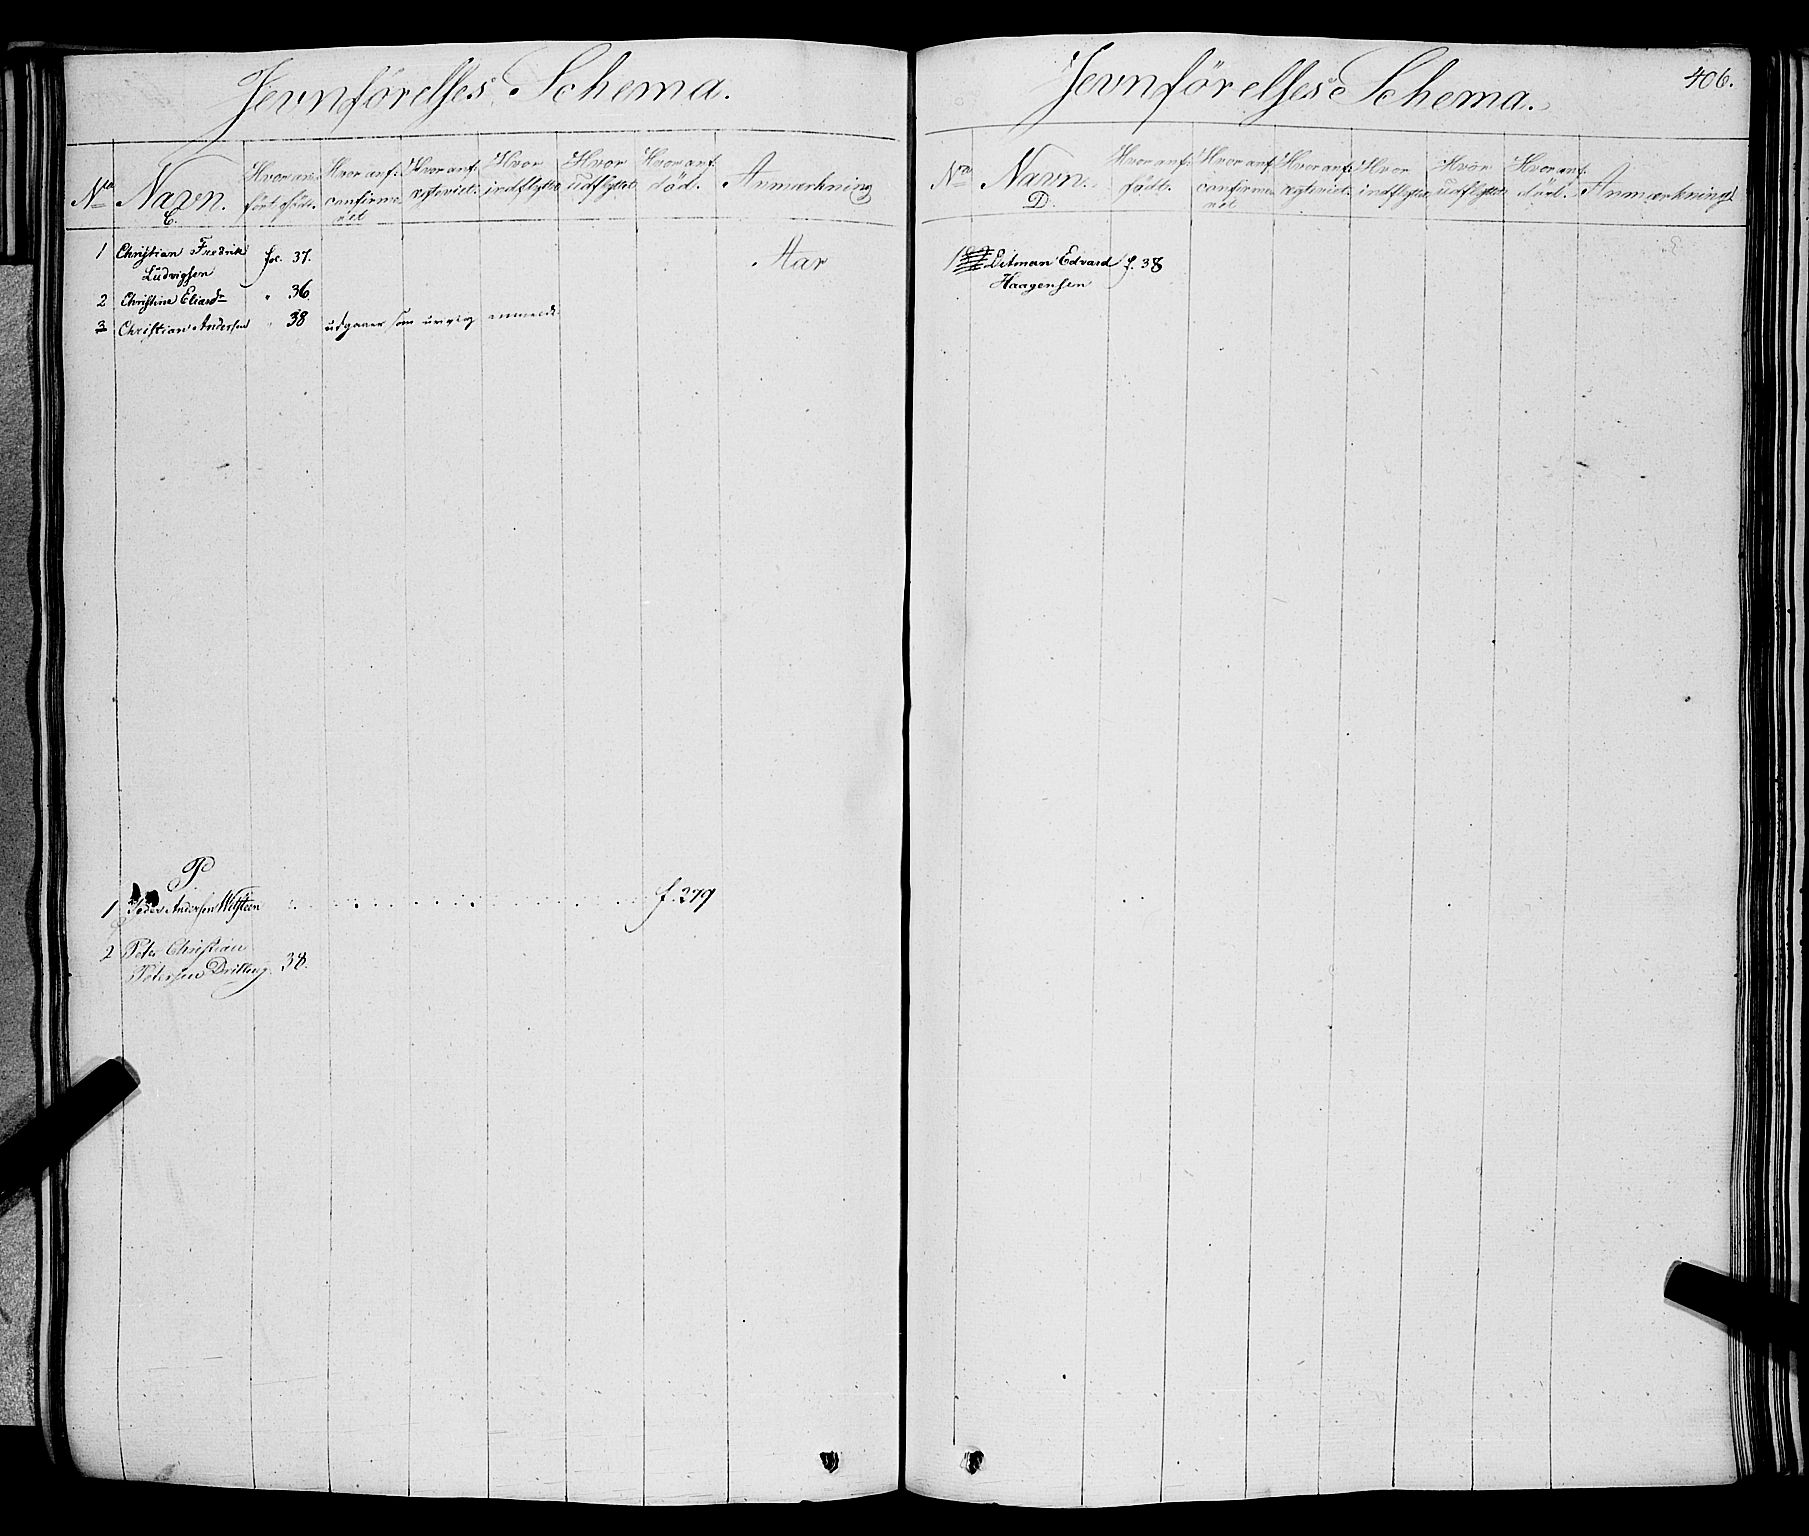 Jevnførelses Schema.
No
Navn.
C.
Hvor an-
ført født.
Hvor anf:
confirme-
ret
Hvor anf:
regleriet.
Hvor
indflyttet
Hvor
udflyttet
Hvor anf:
død.
Anmærkning
1 Christian Fredrik fol. 37. Aar
Ludvigsen
2 Christine Eliasdr " 36
3 Christian Andersen " 38 udgaaer som urigtig anmeldt
P
1 Peder Andersen f. 279
2 Peter Christian
Petersen 38.
Jevnførelses Schema.
406.
No
Navn.
D.
Hvor anf:
født.
Hvor anf
confirme-
ret
Hvor anf:
Hvor
indflyttet
Hvor
udflyttet
Hvor anf.
død.
Anmærkning
1 Ditman Edvard f. 38
Haagensen